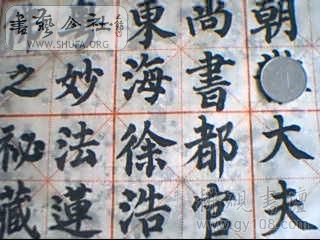 朝大夫
尚書都官
東海徐浩
妙法蓮
之祕藏
書藝公社
www.SHUFA.ORG
www.gy108.com